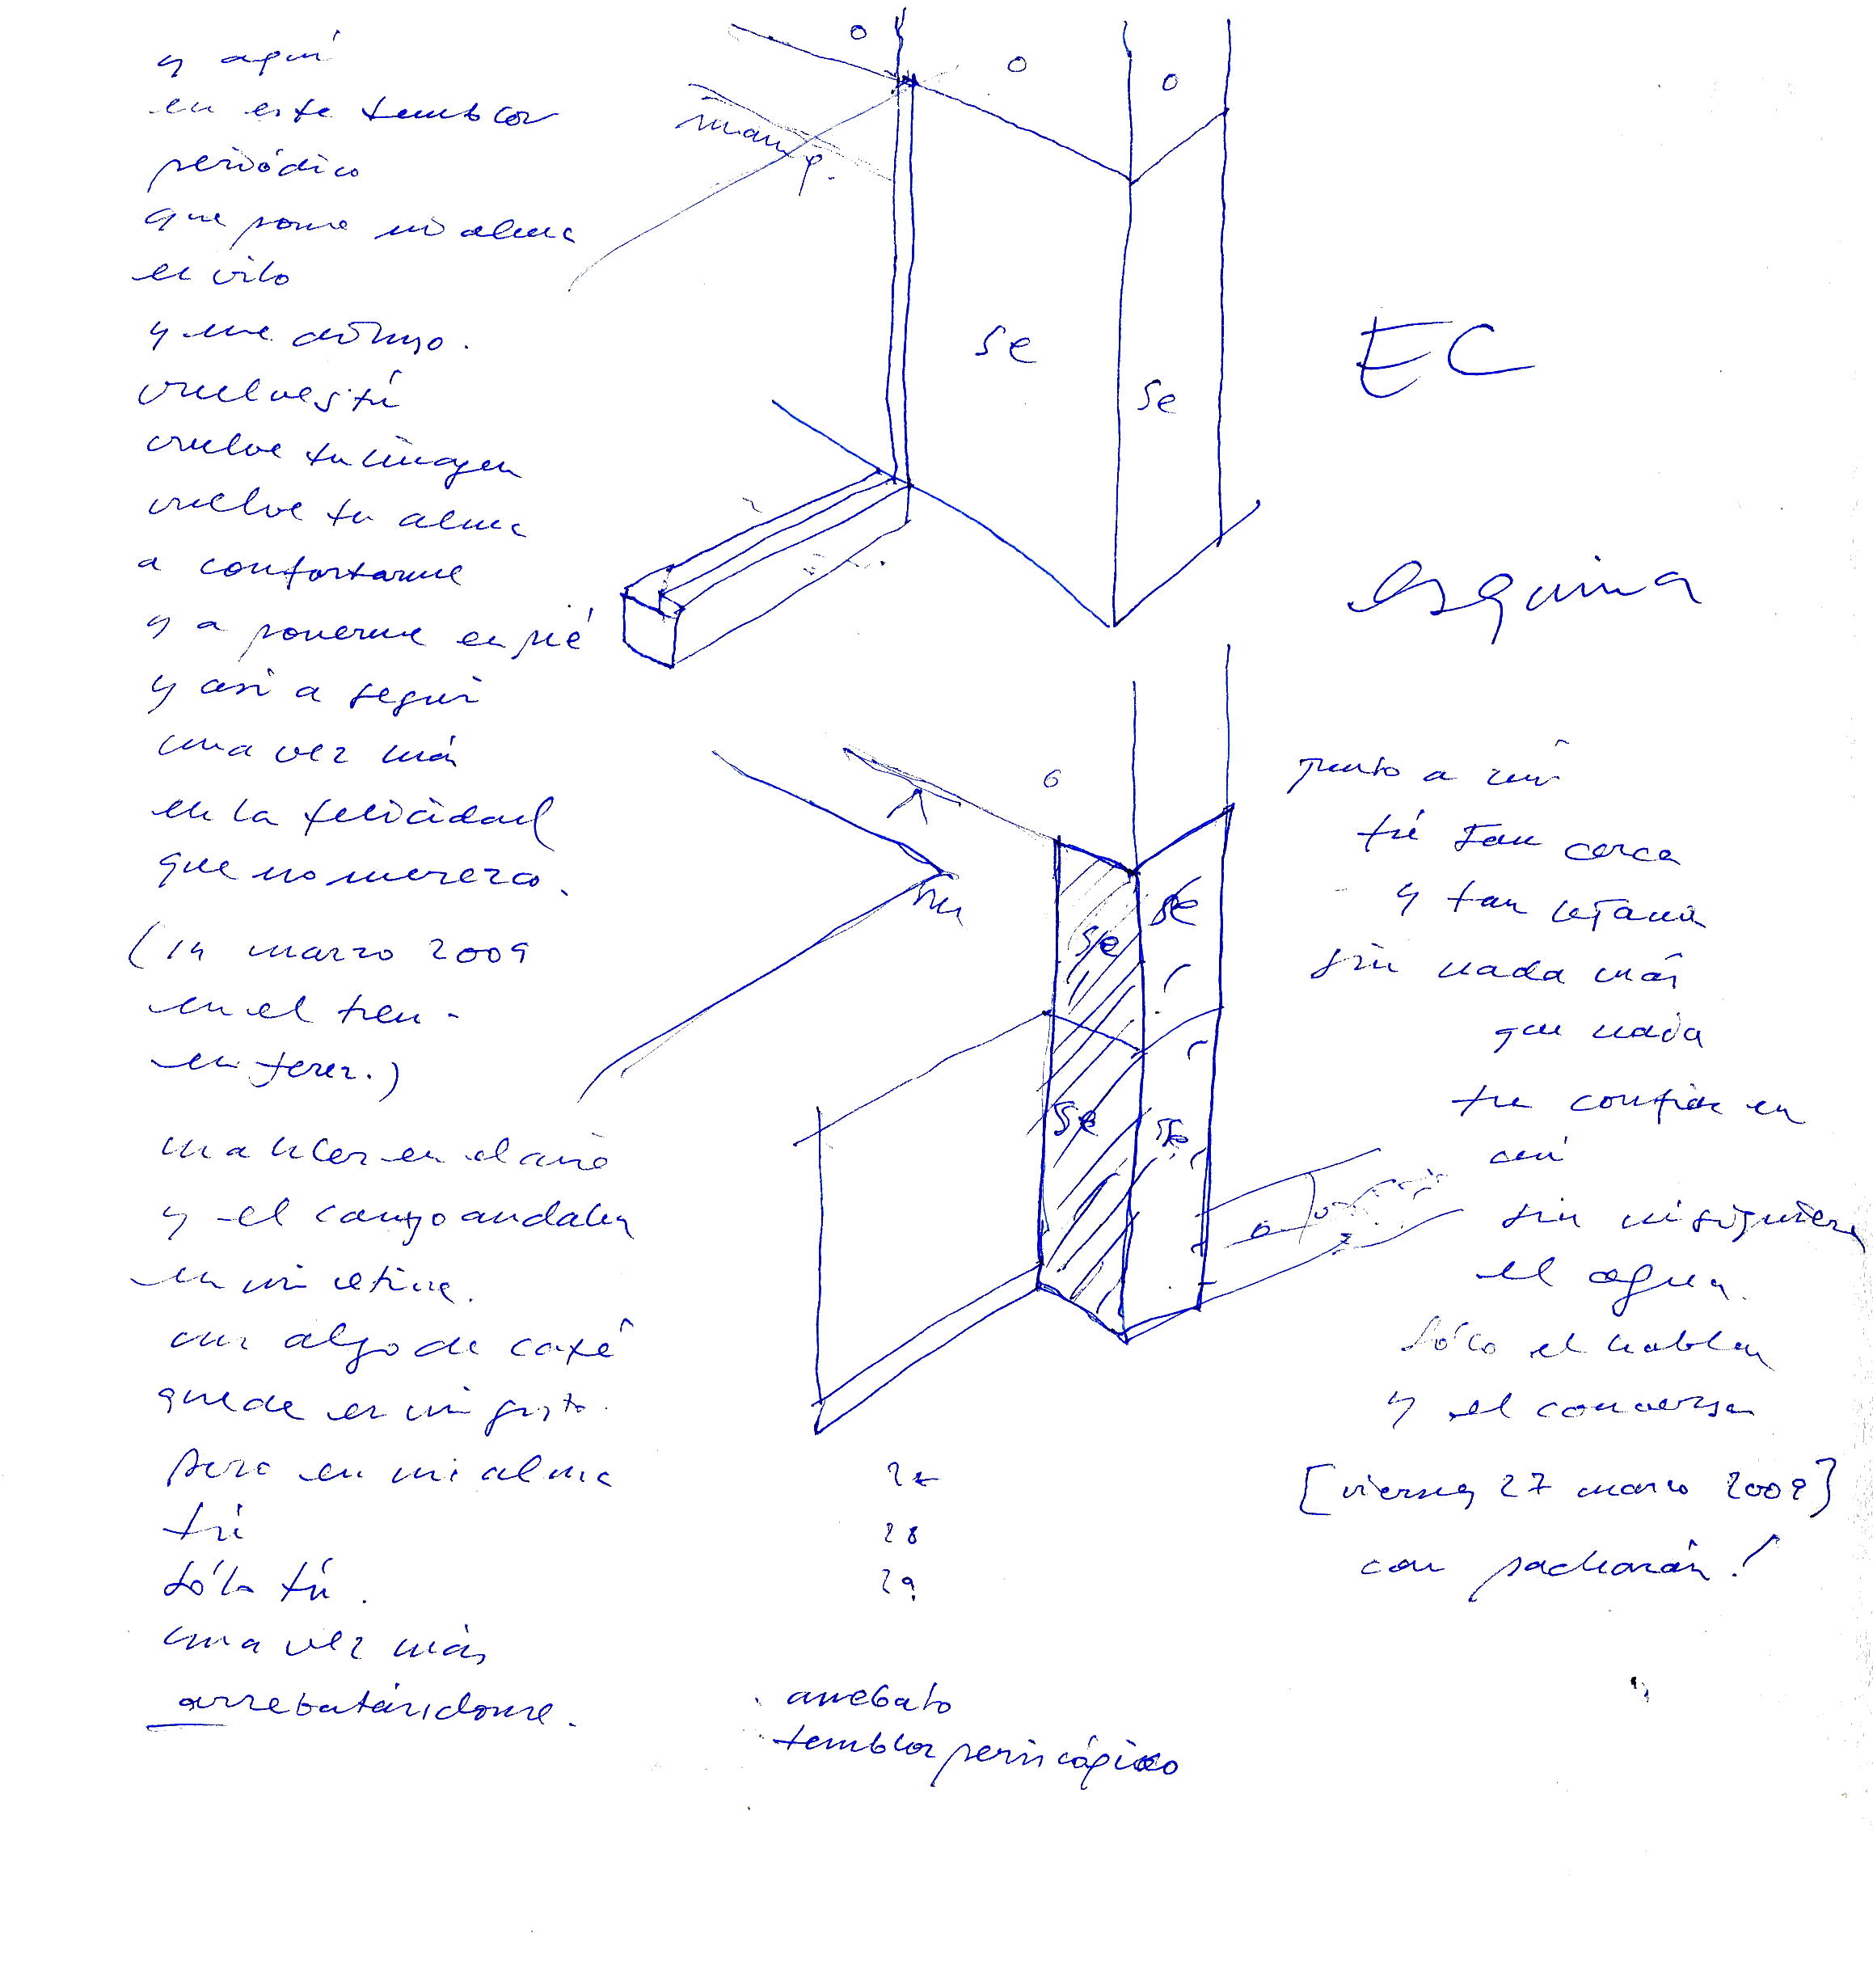 y aquí
en este temblor
periódico
que pone mi alma
en vilo
y me
vuelves tú
vuelve tu imagen
vuelve tu alma
a confortarme
y a ponerme en pié
y asi a seguir
una vez más
en la felicidad
que no merezco.
(14 marzo 2009
en el tren -
en Jerez.)
en el aire
y el campo andaluz
en mi retina.
algo de café
quede en mi gusto.
pero en mi alma
tú
sólo tú.
una vez más
arrebatándome.
o
o
o
se
se
EC
esquina
o
se
se
se
se
27
28
29
. arrebato
. temblor
junto a mí
tú tan cerca
y tan lejana
sin nada más
que nada
tu confías en
mí
sin ni siquiera
el agua.
sólo el hablar
y el conversar
[viernes 27 marzo 2009]
con pacharán!